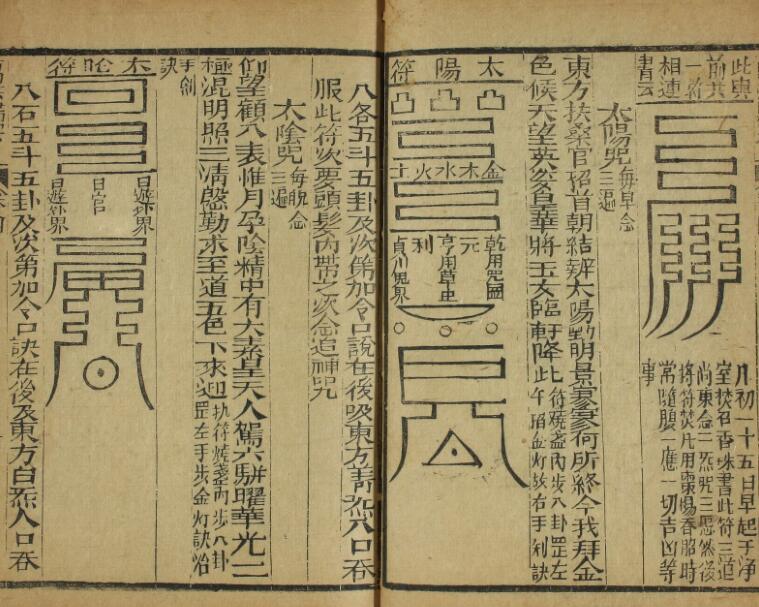 此與
前共
一符
相連
書云
凡初一十五日早起于净
室焚召香硃書此符三道
尚東念二炁咒三遍然後
將符焚凡用棗湯吞服時
常隨腹一應一切吉凶等
事
太陽咒每早念三遍
東方扶桑官招首朝結辨太陽動明景寥寥何所終今我拜金
色候天望英㚇皇華將玉女臨軒降此符燒盞內步八卦罡左
手搯盆灯放右手劍訣
太陽符
凸凸凸
金木水火土
乾用咒國
元亨利貞
八各五斗五卦及次第加令口說在後吸東方青炁八口吞
服此符次要頭髮內帶之次念追神咒
太陰咒每晚念三遍
仰望顧八表惟月孕陰精中有大素皇天人駕六駢曜華光二
極混明照三清慇勤求至道五色下來迎执符燒盞內步八卦
罡左手步金灯訣右
手劍
訣
太陰符
日遊外界
日宮
日遊外界
八石五斗五卦及次第加令口訣在後及東方白炁人口吞